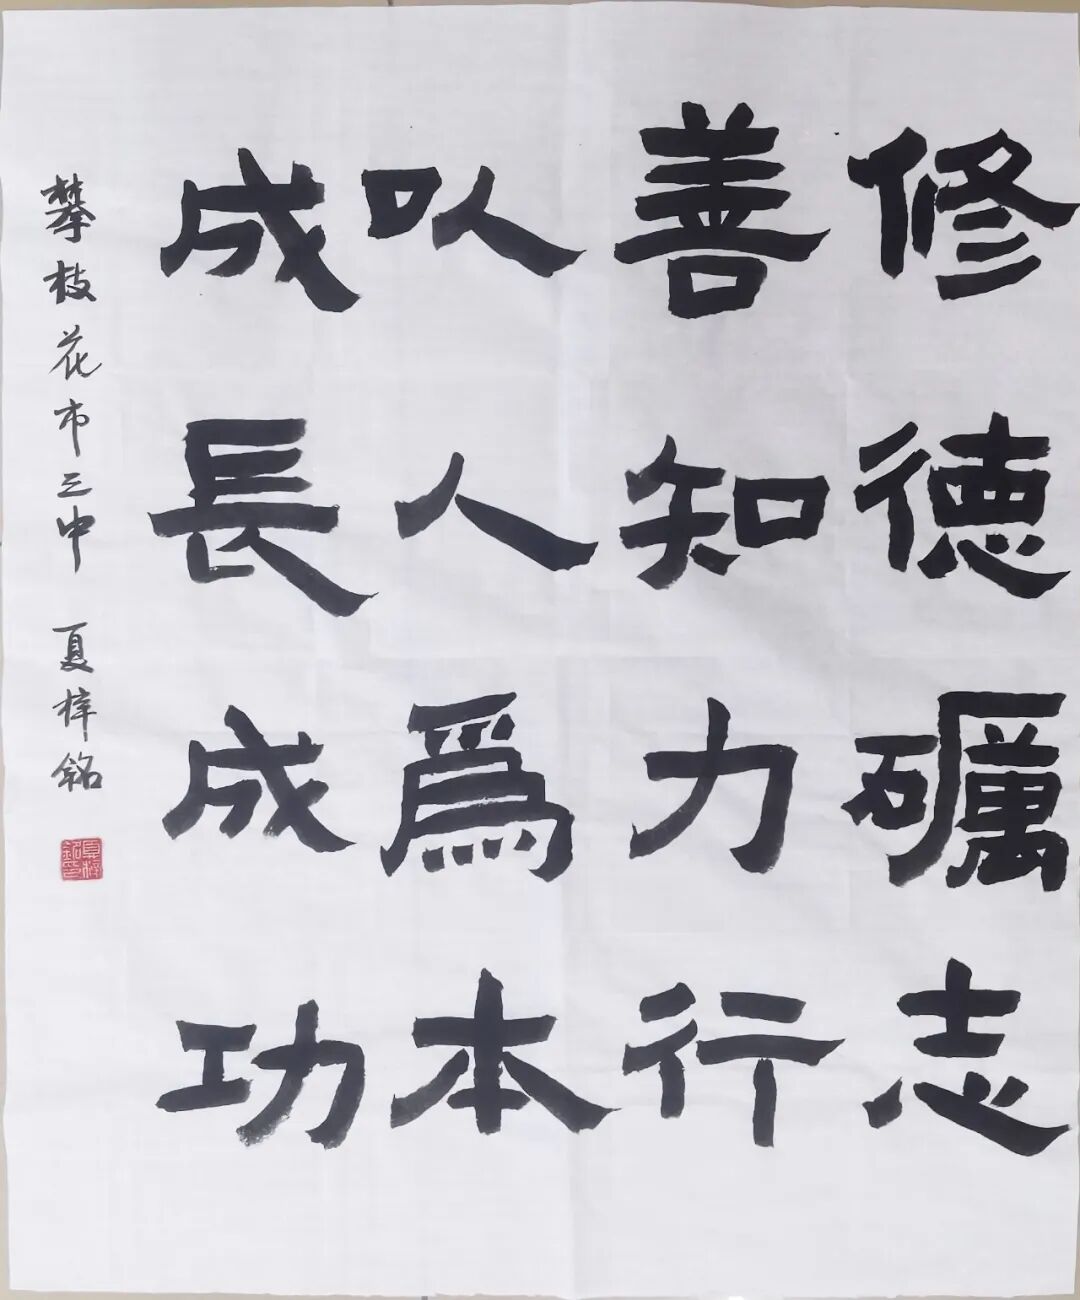 修德礪志
善知力行
以人爲本
成長成功
攀枝花市三中 夏梓銘